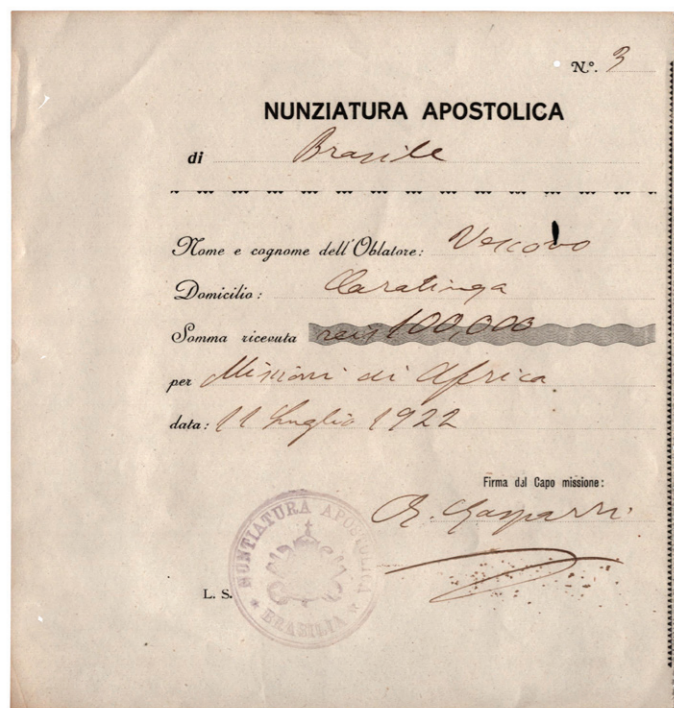 Nº. 3
NUNZIATURA APOSTOLICA
di Brasile
Nome e cognome dell'Oblatore: Vescovo
Domicilio: Caratinga
Somma ricevuta reis 100,000
per Missioni di Africa
data: 11 Luglio 1922
Firma dal Capo missione:
E. Gasparri
NUNTIATURA APOSTOLICA
BRASILIA
L. S.